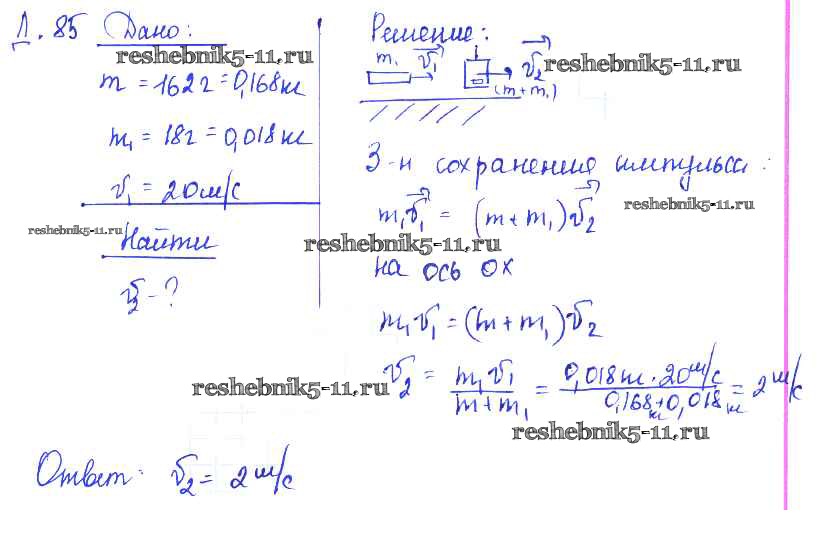 Д. 85 Дано:
reshebnik5-11.ru
m = 162г = 0,168кг
m₁ = 18г = 0,018кг
v₁ = 20м/с
reshebnik5-11.ru
Найти
v₂ - ?
Решение:
m₁ v₁ v₂ reshebnik5-11.ru
(m+m₁)
З-н сохранения импульса:
m₁v₁ = (m+m₁)v₂ reshebnik5-11.ru
reshebnik5-11.ru
на ось ох
m₁v₁ = (m+m₁)v₂
v₂ = m₁v₁ / m+m₁ = 0,018кг · 20м/с / 0,168кг + 0,018кг = 2 м/с
reshebnik5-11.ru
reshebnik5-11.ru
Ответ: v₂ = 2 м/с